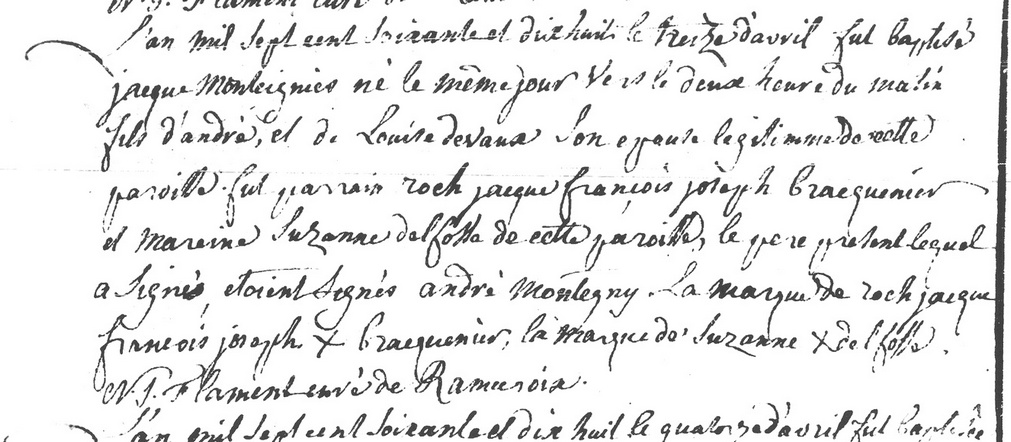 N. J. Flament curé de
L'an mil sept cent soixante et dix huit le treize d'avril fut baptisé
jacque Monteignies né le même jour vers le deux heure du matin
fils d'andré, et de Louise devaux son epouse legitimme de cette
paroisse. fut parrain roch jacque françois joseph bracquenier
et mareine Suzanne delfosse de cette paroisse, le pere present lequel
a signés, etoient signés andré Montegny. La marque de roch jacque
françois joseph X bracquenier, la marque de Suzanne X delfosse.
N. J. Flament curé de Ramecroix.
L'an mil sept cent soixante et dix huit le quatorze d'avril fut baptisée